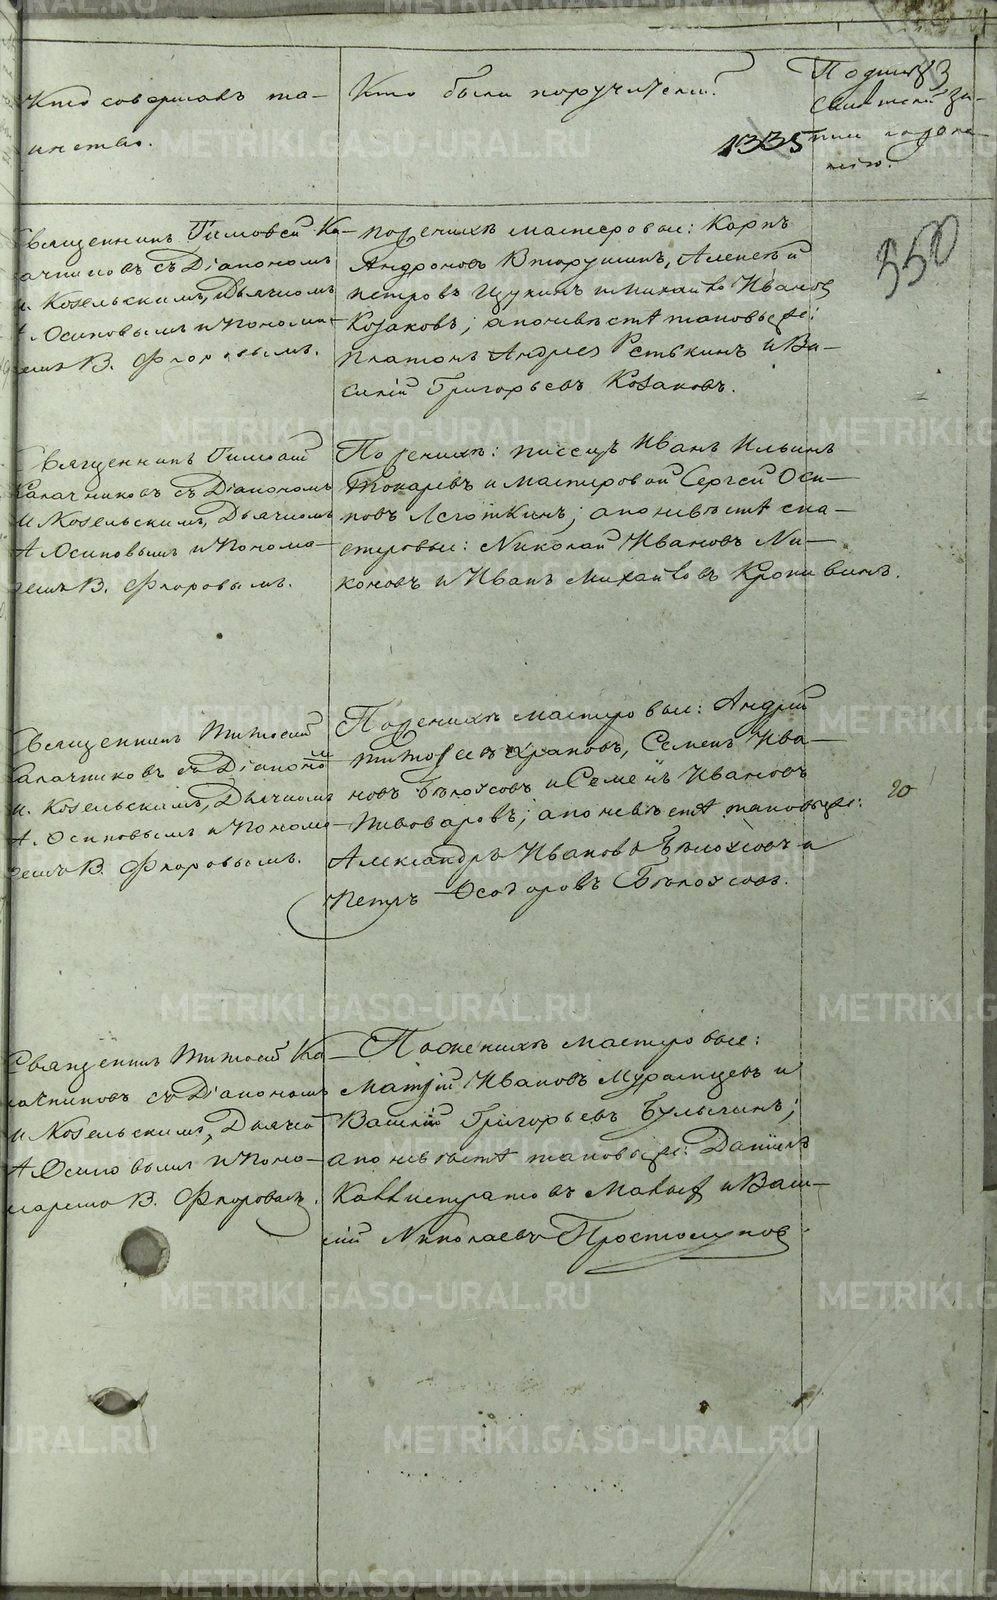 Кто совершалъ та-
инство.
Кто были поручители.
1335
350
Священникъ Тимофей Ка-
лачниковъ съ Діакономъ
И. Козельскимъ, Дьячкомъ
А. Осиповымъ и Понома-
ремъ В. Флоровымъ.
по женихѣ мастеровые: Карпъ
Андроновъ Вторушинъ, Алексѣй
Петровъ Щукинъ и Михайло Ивановъ
Козаковъ; а по невѣстѣ таковыеже:
Платонъ Андреевъ и Ва-
силій Григорьевъ Козаковъ.
Священникъ Тимофей
Калачниковъ съ Діакономъ
И. Козельскимъ, Дьячкомъ
А. Осиповымъ и Понома-
ремъ В. Флоровымъ.
По женихѣ: писецъ Иванъ Ильинъ
Токаревъ и мастеровой Сергей Оси-
повъ Леготкинъ; а по невѣстѣ ма-
стеровые: Николай Ивановъ Ни-
коновъ и Иванъ Михайловъ Кропивинъ.
Священникъ Тимофей
Калачниковъ съ Діакономъ
И. Козельскимъ, Дьячкомъ
А. Осиповымъ и Понома-
ремъ В. Флоровымъ.
По женихѣ мастеровые: Андрей
Тимофеевъ Храповъ, Семенъ Ива-
новъ Бѣлоусовъ и Семенъ Ивановъ
Пивоваровъ; а по невѣстѣ таковыеже:
Александръ Ивановъ Бѣлоусовъ и
Петръ Ѳедоровъ Бѣлоусовъ.
20
Священникъ Тимофей Ка-
лачниковъ съ Діакономъ
И. Козельскимъ, Дьячко
А. Осиповымъ и Поно-
маремъ В. Флоровым.
По женихѣ мастеровые:
Матвѣй Ивановъ Мурзинцевъ и
Василій Григорьевъ Булыгинъ;
а по невѣстѣ таковыеже: Данилъ
Каллистратовъ и Васи-
лій Николаевъ Простолуповъ
METRIKI.GASO-URAL.RU